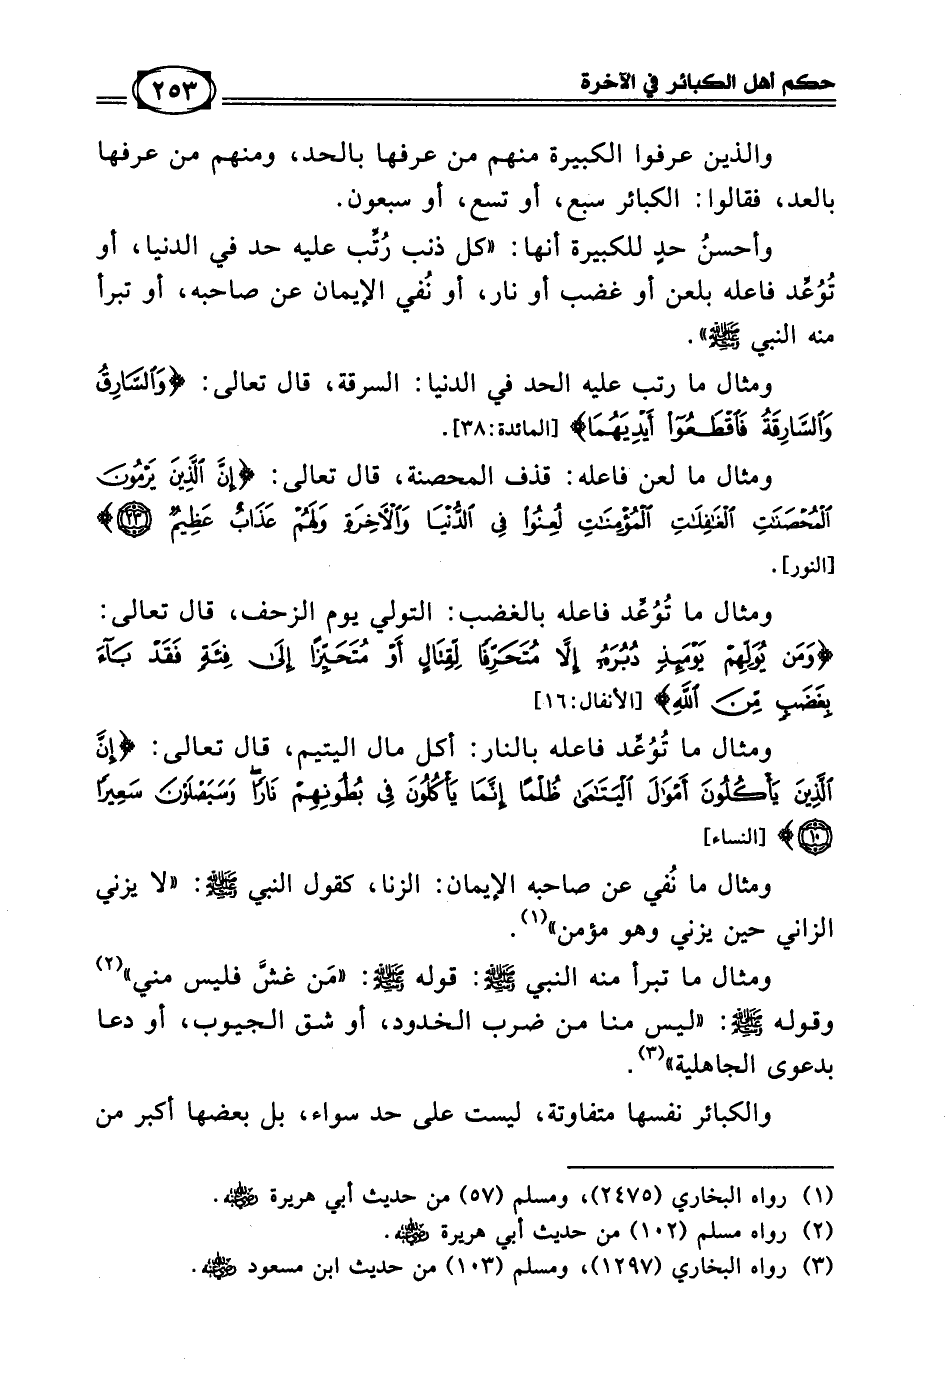 حكم أهل الكبائر في الآخرة
٢٥٣
والذين عرفوا الكبيرة منهم من عرفها بالحد، ومنهم من عرفها
بالعد، فقالوا: الكبائر سبع، أو تسع، أو سبعون.
وأحسنُ حدٍ للكبيرة أنها: «كل ذنب رُتِّب عليه حد في الدنيا، أو
تُوُعِّد فاعله بلعن أو غضب أو نار، أو نُفي الإيمان عن صاحبه، أو تبرأ
منه النبي ﷺ».
ومثال ما رتب عليه الحد في الدنيا: السرقة، قال تعالى: ﴿وَٱلسَّارِقُ
وَٱلسَّارِقَةُ فَٱقْطَعُوٓا۟ أَيْدِيَهُمَا﴾ [المائدة:٣٨].
ومثال ما لعن فاعله: قذف المحصنة، قال تعالى: ﴿إِنَّ ٱلَّذِينَ يَرْمُونَ
ٱلْمُحْصَنَٰتِ ٱلْغَٰفِلَٰتِ ٱلْمُؤْمِنَٰتِ لُعِنُوا۟ فِى ٱلدُّنْيَا وَٱلْءَاخِرَةِ وَلَهُمْ عَذَابٌ عَظِيمٌ ٢٣﴾
[النور].
ومثال ما تُوُعِّد فاعله بالغضب: التولي يوم الزحف، قال تعالى:
﴿وَمَن يُوَلِّهِمْ يَوْمَئِذٍ دُبُرَهُۥٓ إِلَّا مُتَحَرِّفًا لِّقِتَالٍ أَوْ مُتَحَيِّزًا إِلَىٰ فِئَةٍ فَقَدْ بَآءَ
بِغَضَبٍ مِّنَ ٱللَّهِ﴾ [الأنفال:١٦]
ومثال ما تُوُعِّد فاعله بالنار: أكل مال اليتيم، قال تعالى: ﴿إِنَّ
ٱلَّذِينَ يَأْكُلُونَ أَمْوَٰلَ ٱلْيَتَٰمَىٰ ظُلْمًا إِنَّمَا يَأْكُلُونَ فِى بُطُونِهِمْ نَارًا ۖ وَسَيَصْلَوْنَ سَعِيرًا
١٠﴾ [النساء]
ومثال ما نُفي عن صاحبه الإيمان: الزنا، كقول النبي ﷺ: «لا يزني
الزاني حين يزني وهو مؤمن»(١).
ومثال ما تبرأ منه النبي ﷺ: قوله ﷺ: «مَن غشَّ فليس مني»(٢)
وقوله ﷺ: «ليس منا من ضرب الخدود، أو شق الجيوب، أو دعا
بدعوى الجاهلية»(٣).
والكبائر نفسها متفاوتة، ليست على حد سواء، بل بعضها أكبر من
(١) رواه البخاري (٢٤٧٥)، ومسلم (٥٧) من حديث أبي هريرة رضي الله عنه.
(٢) رواه مسلم (١٠٢) من حديث أبي هريرة رضي الله عنه.
(٣) رواه البخاري (١٢٩٧)، ومسلم (١٠٣) من حديث ابن مسعود رضي الله عنه.